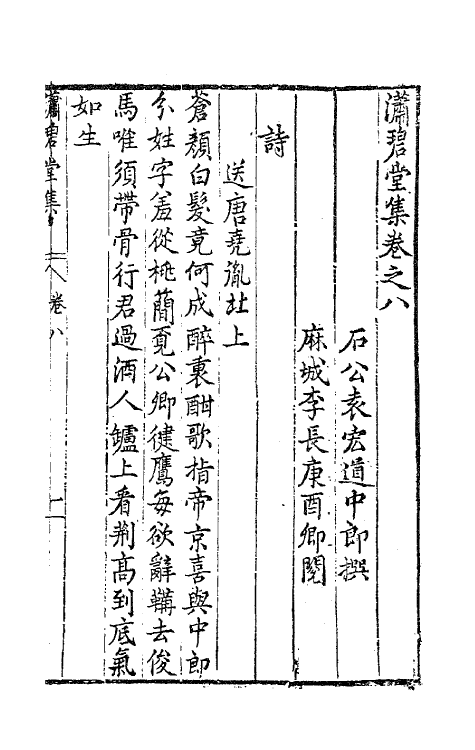 瀟碧堂集卷之八
石公袁宏道中郎撰
麻城李長庚酉卿閱
詩
送唐堯胤北上
蒼顏白髮竟何成醉裏酣歌指帝京喜與中郎
分姓字羞從桃藺覓公卿健鷹每欲辭韝去俊
馬唯須帶骨行君過酒人鑪上看荆高到底氣
如生
瀟碧堂集
卷八
一